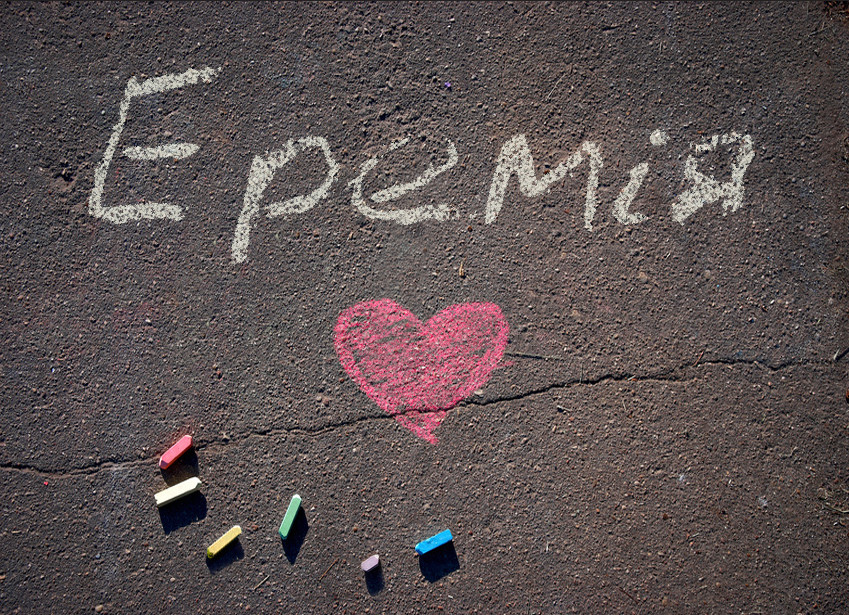 Еремія